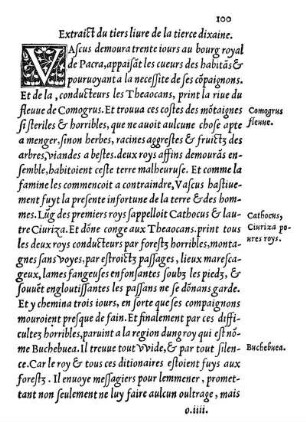 100
Extraict du tiers liure de la tierce dixaine.
VAscus demoura trente iours au bourg royal
de Pacra, appaisãt les cueurs des habitãs &
pouruoyant a la necessite de ses cõpaignons.
Et de la, conducteurs les Theaocans, print la riue du
fleuue de Comogrus. Et trouua ces costes des mõtaignes
Comogrus
fleuue.
si steriles & horribles, que ne auoit aulcune chose apte
a menger, sinon herbes, racines aggrestes & fruictz des
arbres, viandes a bestes. deux roys affins demourãs en-
semble, habitoient ceste terre malheureuse. Et comme la
famine les commencoit a contraindre, Vascus hastiue-
ment fuyt la presente infortune de la terre & des hom-
mes. Lũg des premiers roys sappelloit Cathocus & lau-
tre Ciuriza. Et dõne conge aux Theaocans. print tous
Cathocus,
Ciuriza po
ures roys.
les deux roys conducteurs par forestz horribles, monta-
gnes sans voyes, par estroictz passages, lieux maresca-
geux, lames fangeuses enfonsantes soubz les piedz, &
souuẽt engloutissantes les passans ne se dõnans garde.
Et y chemina trois iours, en sorte que ses compaignons
mouroient presque de fain. Et finalement par ces diffi-
cultez horribles, paruint a la region dung roy qui est nõ-
me Buchebuea. Il treuue tout vvide, & par tout silen-
Buchebuea.
ce. Car le roy & tous ces ditionaires estoient fuys aux
forestz. Il enuoye messagiers pour lemmener, promet-
tant non seulement ne luy faire aulcun oultrage, mais
o.iiii.